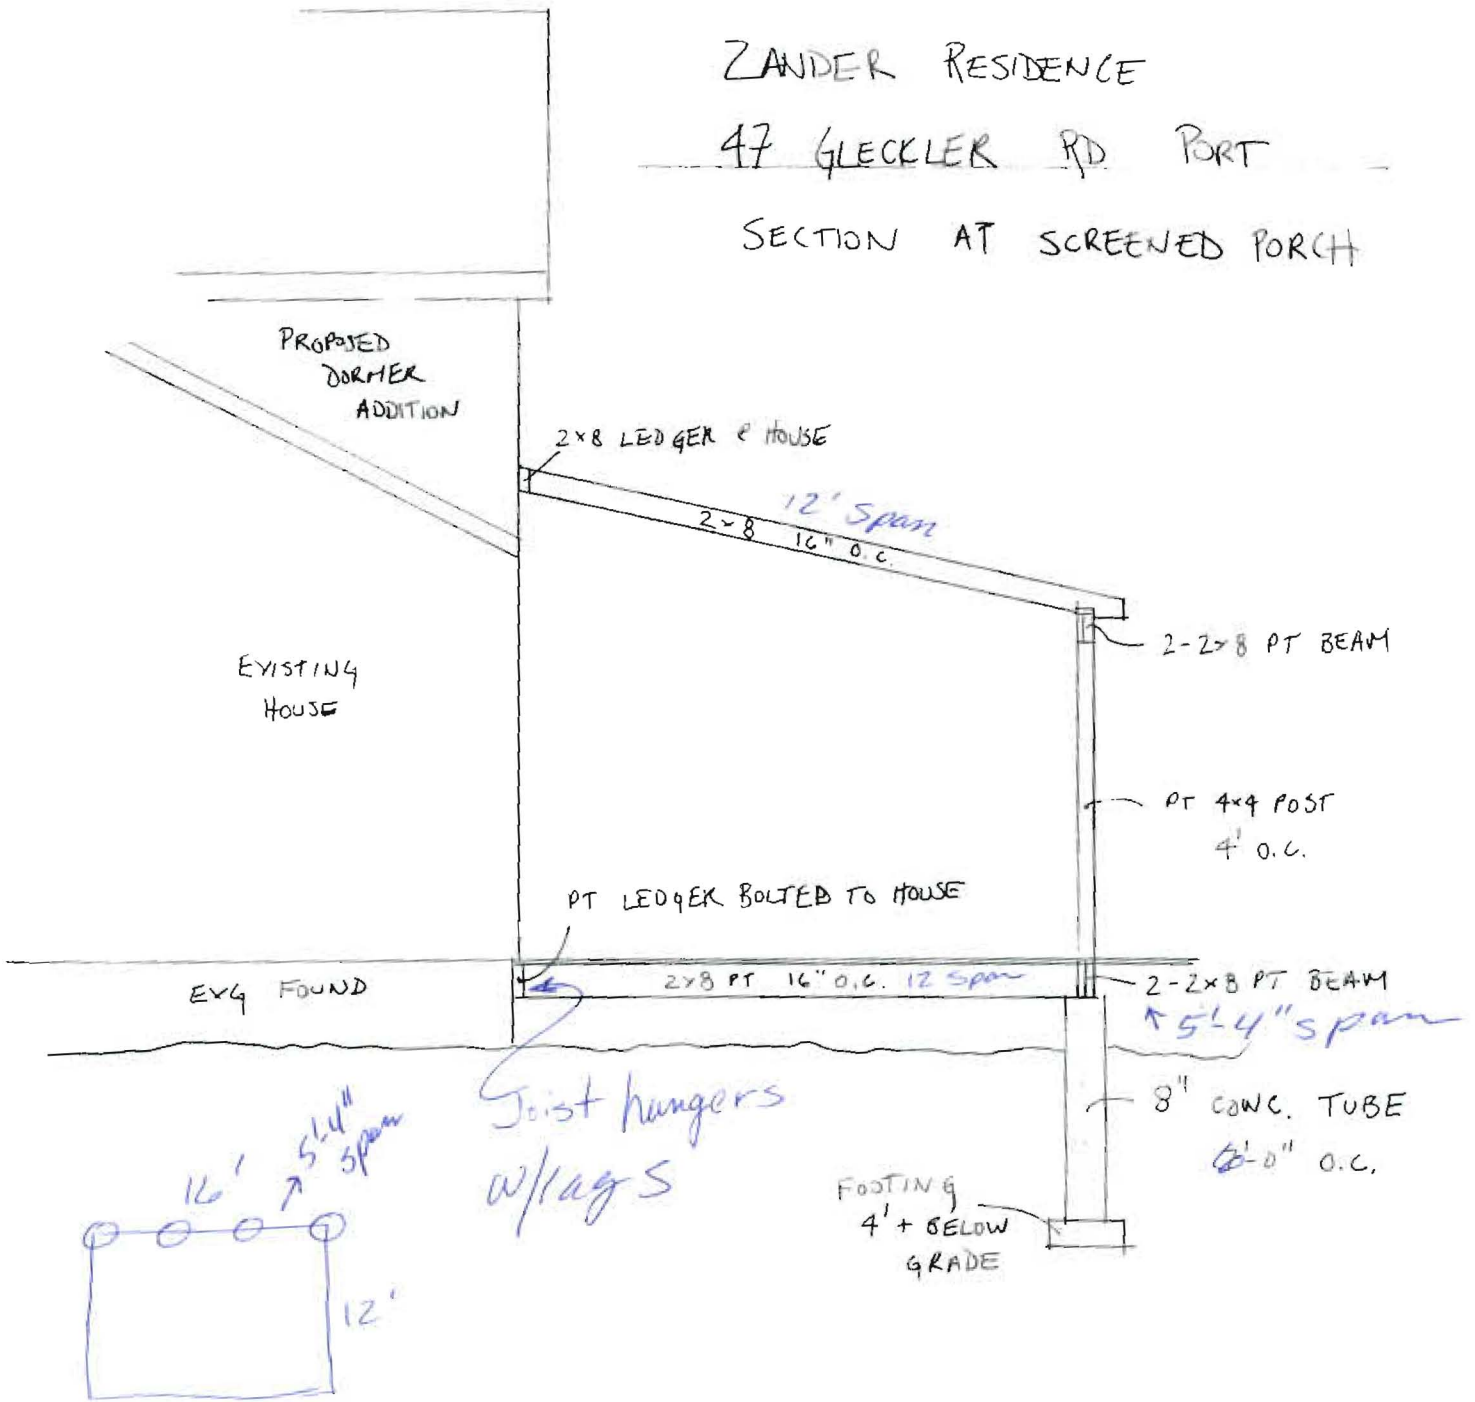 ZANDER RESIDENCE
47 GLECKLER RD PORT
SECTION AT SCREENED PORCH
PROPOSED
DORMER
ADDITION
2x8 LEDGER @ HOUSE
12' Span
2x8 16" O.C.
2-2x8 PT BEAM
EXISTING
HOUSE
PT 4x4 POST
4' O.C.
PT LEDGER BOLTED TO HOUSE
EXG FOUND
2x8 PT 16" O.C. 12 Span
2-2x8 PT BEAM
5'-4" span
Joist hangers
w/lags
8" CONC. TUBE
-0" O.C.
FOOTING
4'+ BELOW
GRADE
16'
5'-4"
span
12'